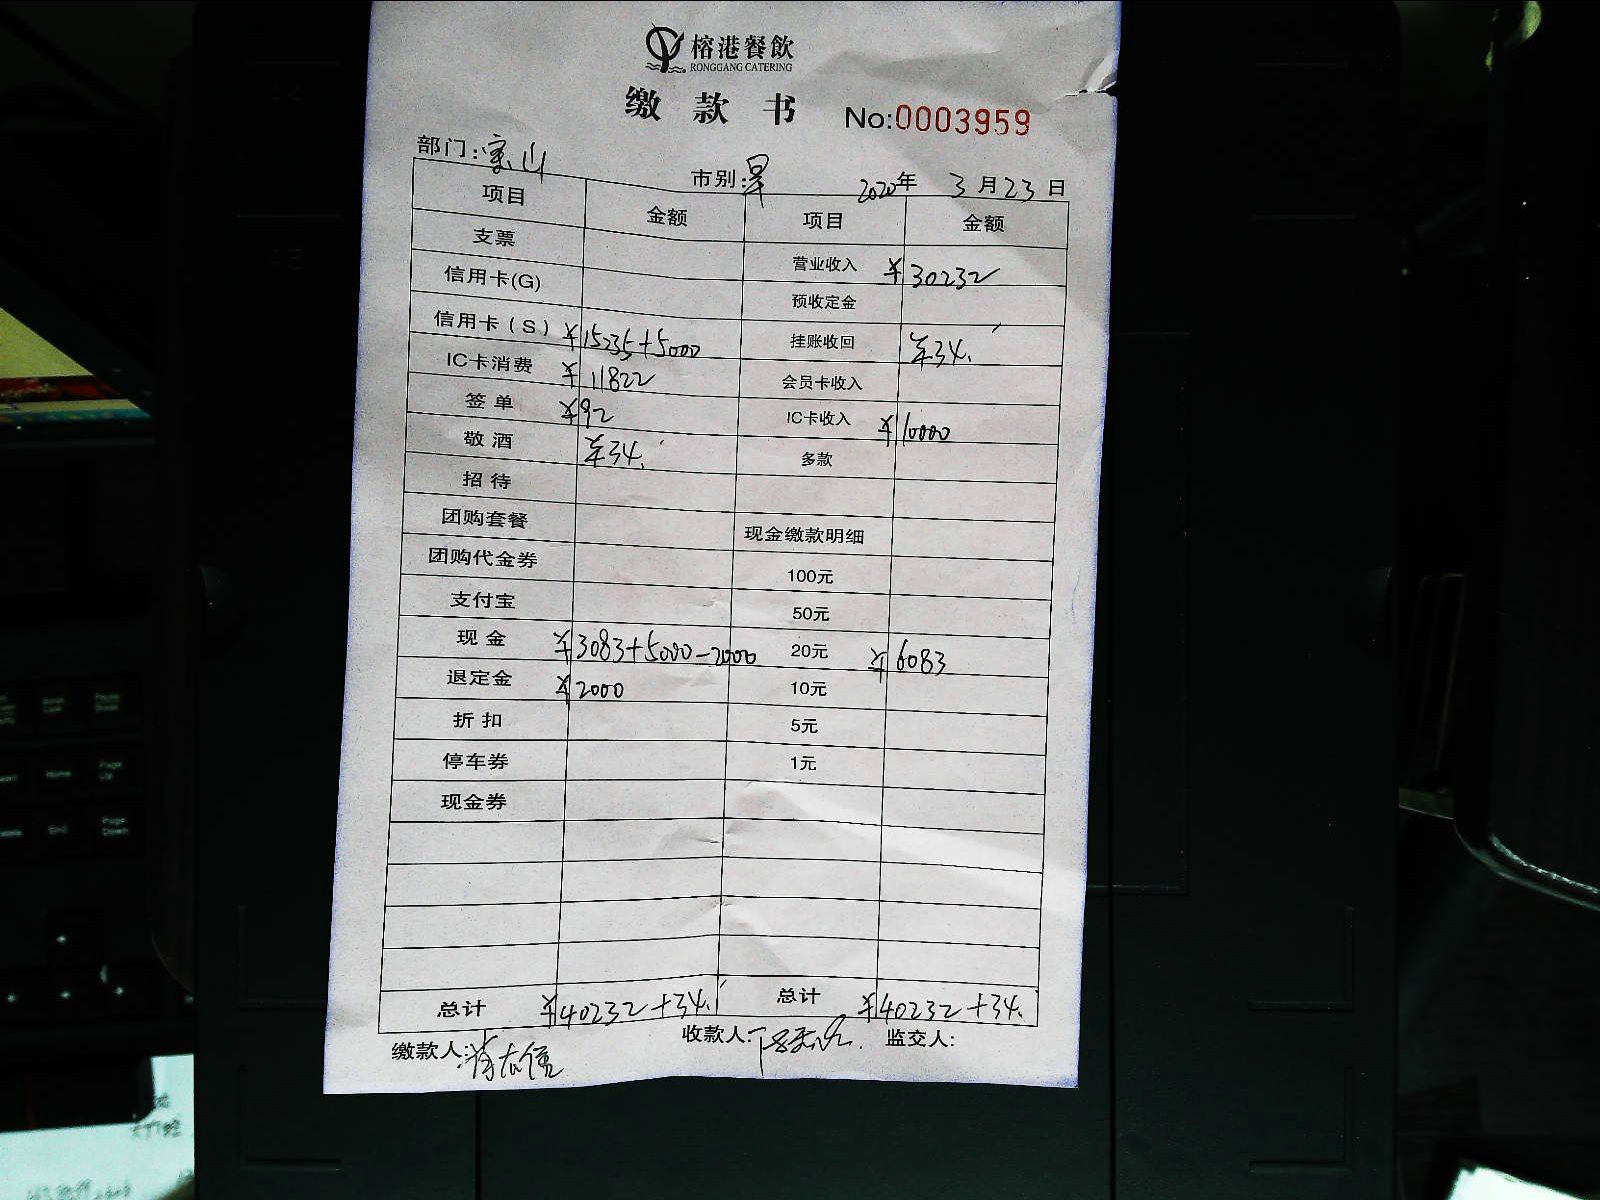 榕港餐飲
RONGGANG CATERING
缴款书 No:0003959
部门:宝山 市别:早 2020年 3月23日
项目 金额 项目 金额
支票 营业收入 ¥30232
信用卡(G) 预收定金
信用卡(S) ¥15235+5000 挂账收回 羊34.
IC卡消费 ¥11822 会员卡收入
签单 ¥92 IC卡收入 ¥10000
敬酒 羊34. 多款
招待
团购套餐 现金缴款明细
团购代金券 100元
支付宝 50元
现金 ¥3083+5000-2000 20元 ¥6083
退定金 ¥2000 10元
折扣 5元
停车券 1元
现金券
总计 ¥40232+34. 总计 ¥40232+34.
缴款人: 收款人: 监交人:
Page Up
Home
End
Page Down